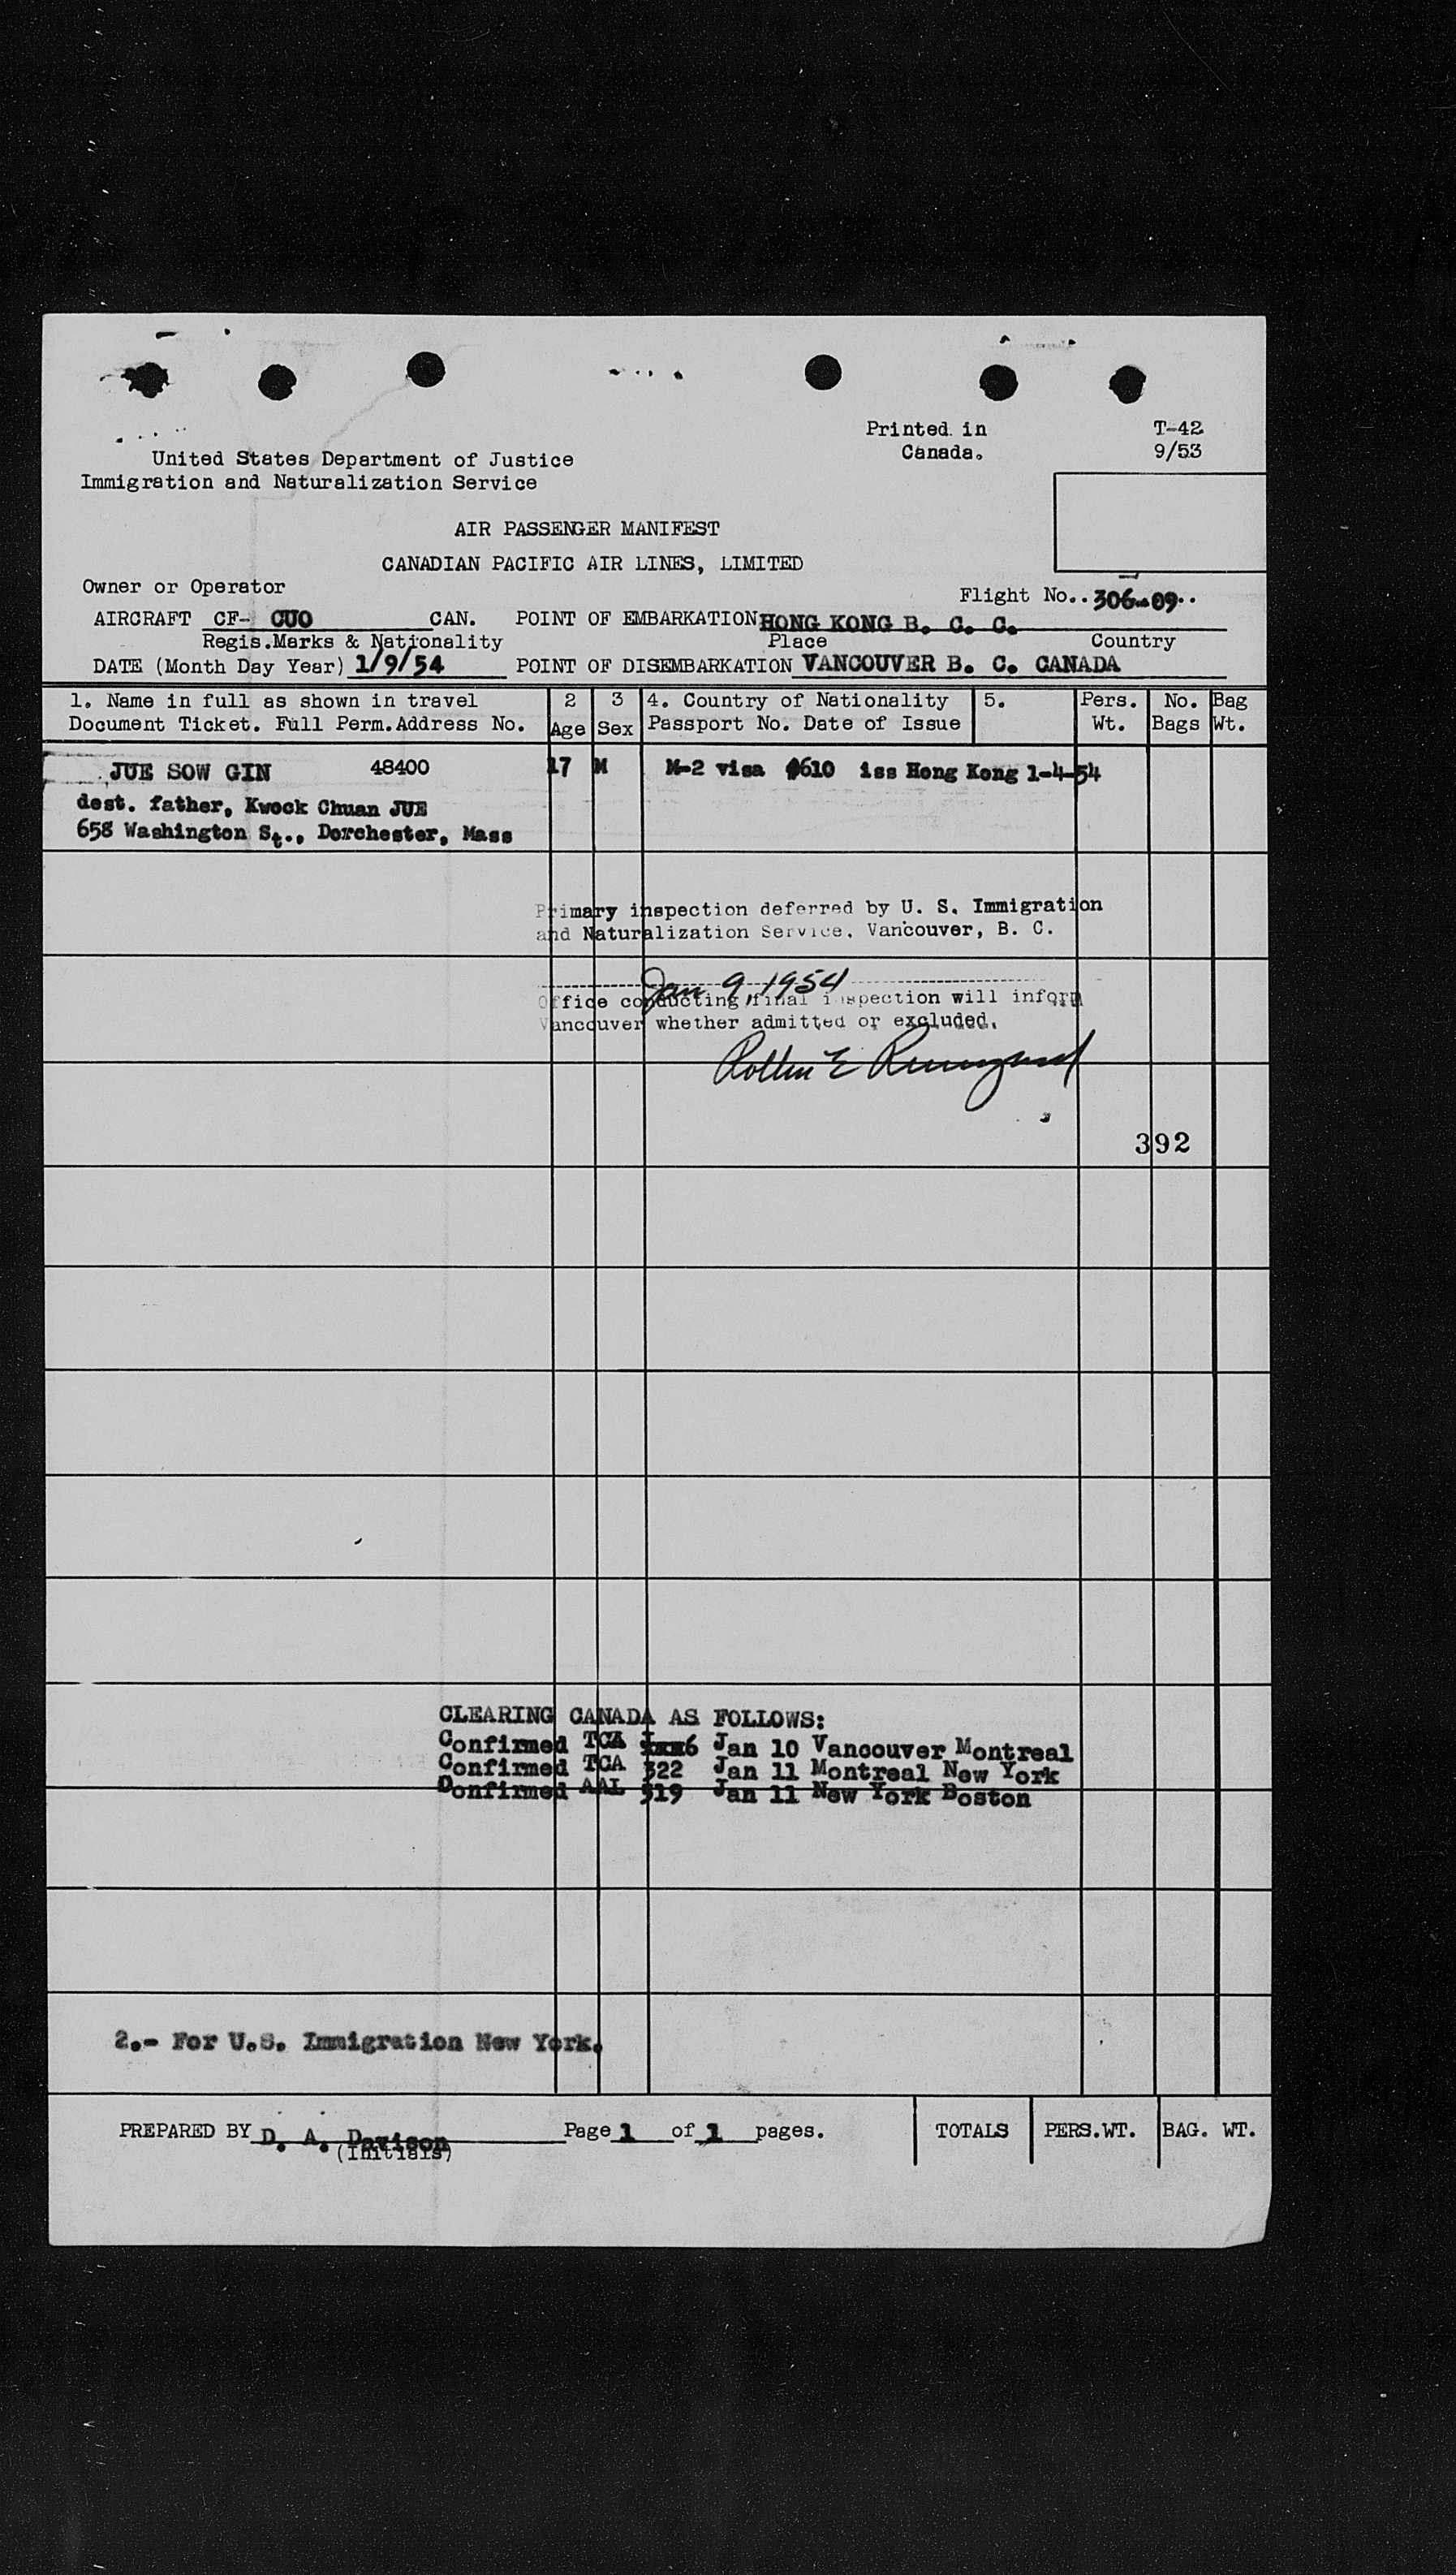 Printed in T-42
Canada. 9/53
United States Department of Justice
Immigration and Naturalization Service
AIR PASSENGER MANIFEST
CANADIAN PACIFIC AIR LINES, LIMITED
Owner or Operator
Flight No..306-09..
AIRCRAFT CF- CUO CAN. POINT OF EMBARKATION HONG KONG B. C. C.
Regis.Marks & Nationality Place Country
DATE (Month Day Year) 1/9/54 POINT OF DISEMBARKATION VANCOUVER B. C. CANADA
1. Name in full as shown in travel 2 3 4. Country of Nationality 5. Pers. No. Bag
Document Ticket. Full Perm.Address No. Age Sex Passport No. Date of Issue Wt. Bags Wt.
JUE SOW GIN 48400 17 M M-2 visa #610 iss Hong Kong 1-4-54
dest. father, Kwock Chuan JUE
658 Washington St., Dorchester, Mass
Primary inspection deferred by U. S. Immigration
and Naturalization Service, Vancouver, B. C.
Jan 9, 1954
Office conducting final inspection will inform
Vancouver whether admitted or excluded.
392
CLEARING CANADA AS FOLLOWS:
Confirmed TCA 6 Jan 10 Vancouver Montreal
Confirmed TCA 322 Jan 11 Montreal New York
Donfirmed AAL 519 Jan 11 New York Boston
2.- For U.S. Immigration New York.
PREPARED BY D. A. Davison Page 1 of 1 pages. TOTALS PERS.WT. BAG. WT.
(Initials)